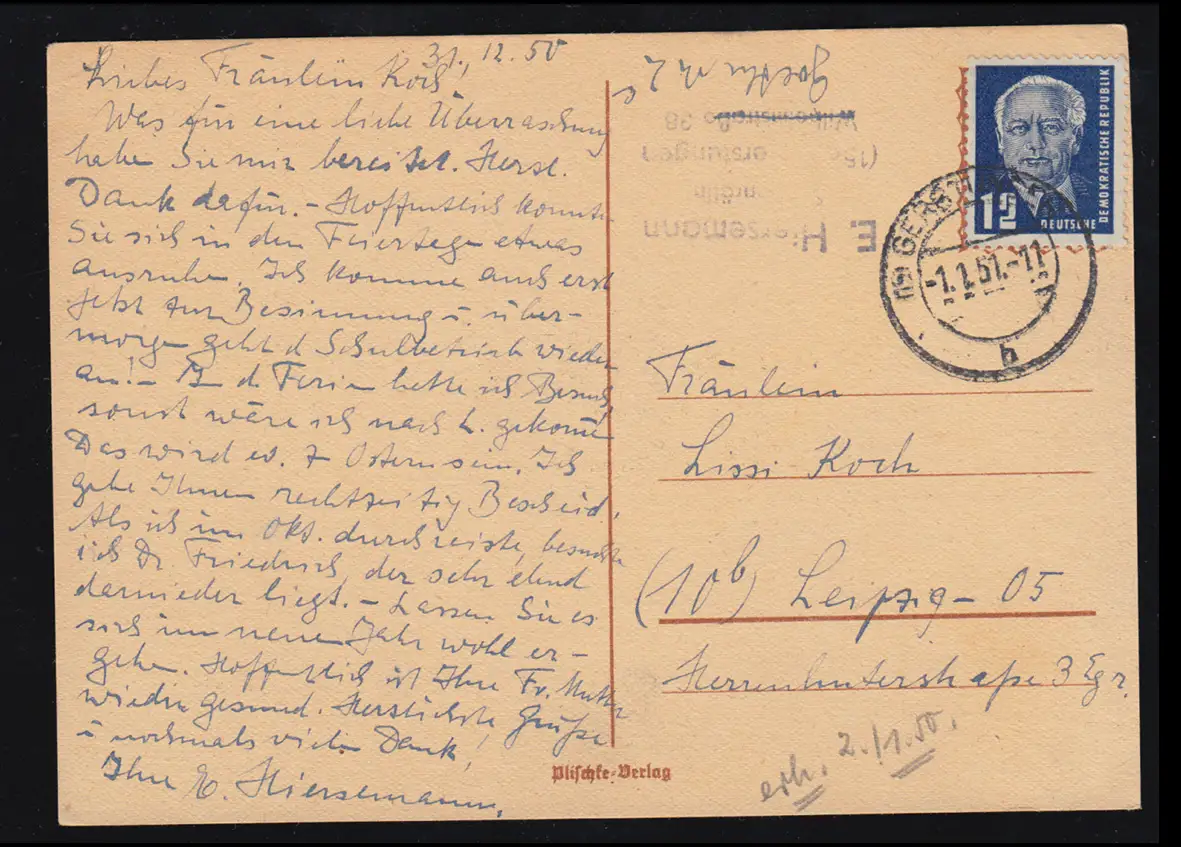 31.12.50
Liebes Fräulein Koch,
Was für eine liebe Überraschung
haben Sie mir bereitet. Herzl.
Dank dafür. - Hoffentlich konnten
Sie sich in den Feiertagen etwas
ausruhen. Ich komme auch erst
jetzt zur Besinnung u. über-
morgen geht d Schulbetrieb wieder
an! - In d Ferien hatte ich Besuch,
sonst wäre ich nach L. gekommen
Das wird ev. z Ostern sein. Ich
gebe Ihnen rechtzeitig Bescheid.
Als ich im Okt. durchreiste, besuchte
ich Dr. Friedrich, der sehr elend
darnieder liegt. - Lassen Sie es
sich im neuen Jahr wohl er-
gehen. Hoffentlich ist Ihre Fr. Mutter
wieder gesund. Herzlichste Grüße
u nochmals vielen Dank,
Ihre E. Hiersemann.
E. Hiersemann
(15a) Gerstungen
Wilhelmstraße 38
DEUTSCHE DEMOKRATISCHE REPUBLIK
12
-1.1.51.-11
b
Fräulein
Lissi Koch
(10b) Leipzig- O5
Herrenhuterstraße 3 Egr.
erh. 2./1.50.
Plischke-Verlag